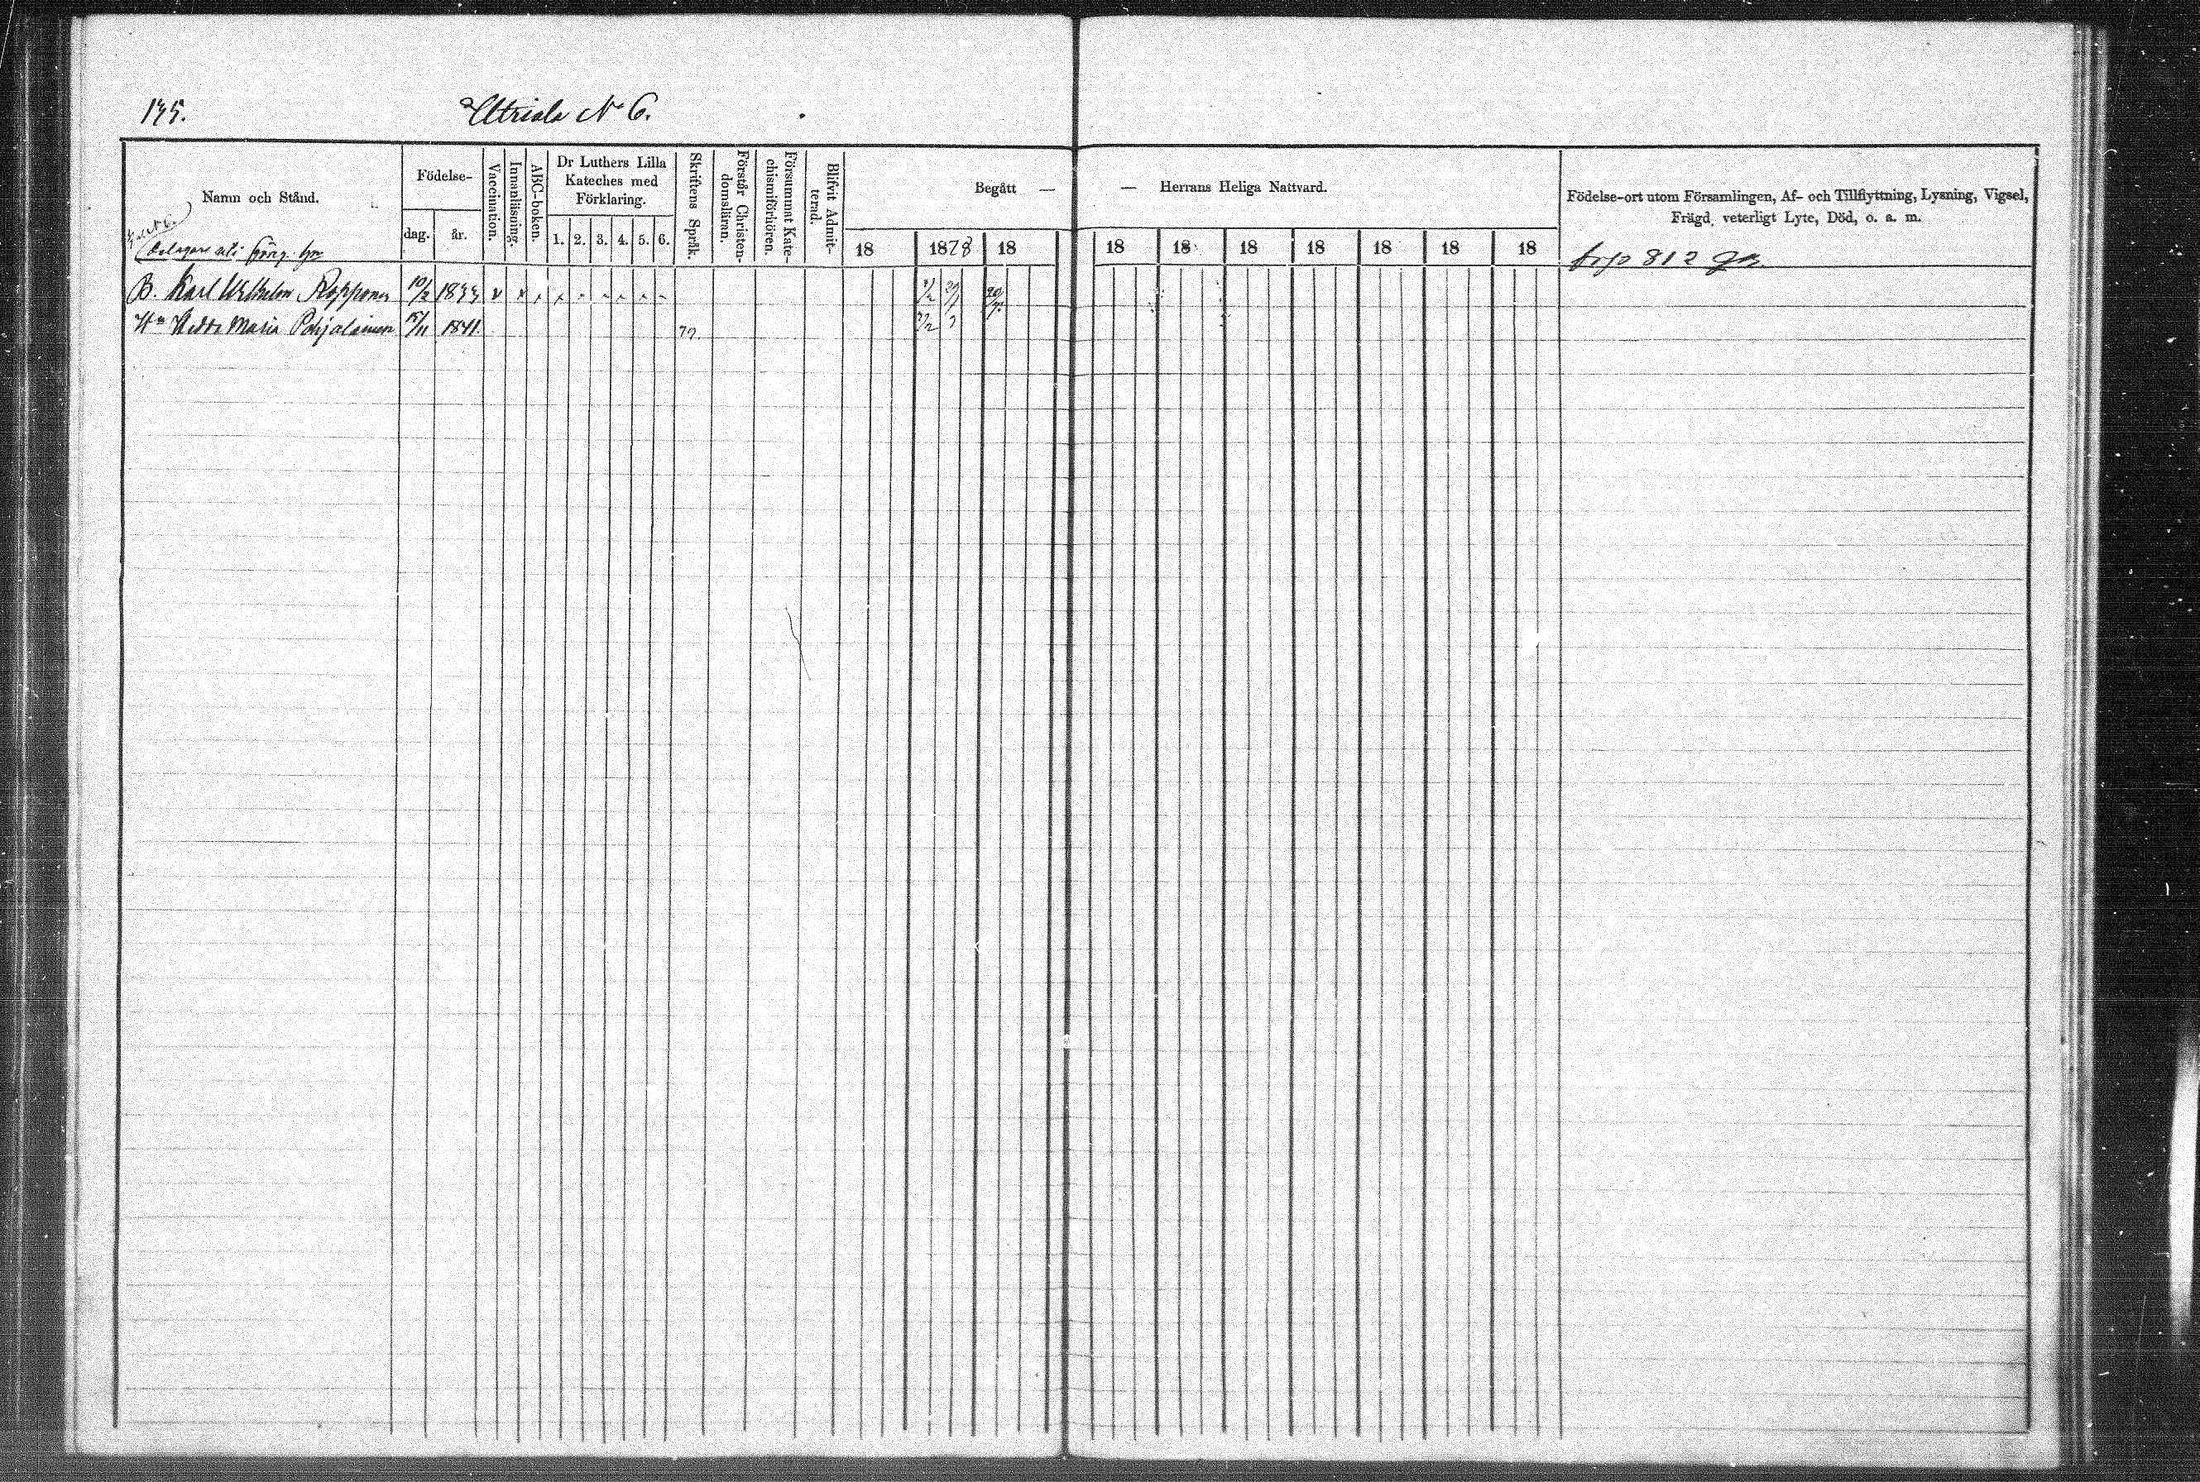 135.
Utriala No 6.
Namn och Stånd.
Födelse-
dag.
år.
Vaccination.
Innanläsning.
ABC-boken.
Dr Luthers Lilla
Kateches med
Förklaring.
1. 2. 3. 4. 5. 6.
Skriftens Språk.
Förstår Christen-
domsläran.
Försummat Kate-
chismiförhören.
Blifvit Admit-
terad.
Begått —
18 1878 18
— Herrans Heliga Nattvard.
18 18 18 18 18 18 18
Födelse-ort utom Församlingen, Af- och Tillflyttning, Lysning, Vigsel,
Frägd, veterligt Lyte, Död, o. a. m.
812
B. Karl Wilhelm Ropponen 10/2 1833
Hu Hedda Maria Pohjalainen 15/11 1841.